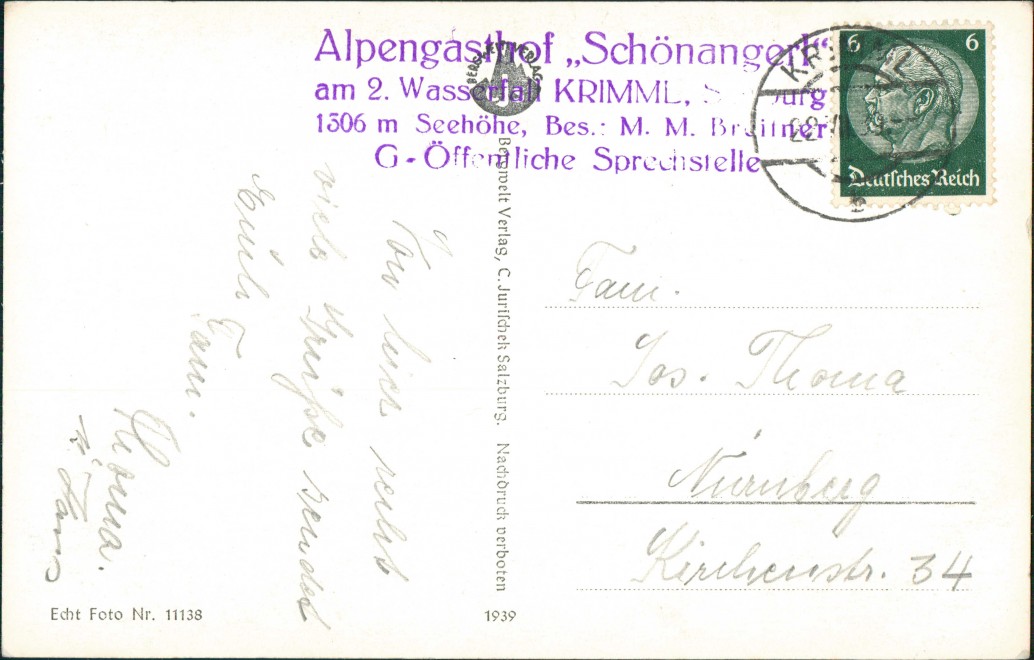 Alpengasthof „Schönangerl“
am 2. Wasserfall KRIMML, Salzburg
1306 m Seehöhe, Bes.: M. M. Breitner
G-Öffentliche Sprechstelle
6 6
Deutsches Reich
KRIMML
b
BERGWELT VERLAG
Von hier recht
viele Grüße sendet
Euch
Fam.
Thoma.
Bergwelt Verlag, C. Juritschek Salzburg. Nachdruck verboten
Fam.
Jos. Thoma
Nürnberg
Kirchenstr. 34
Echt Foto Nr. 11138
1939